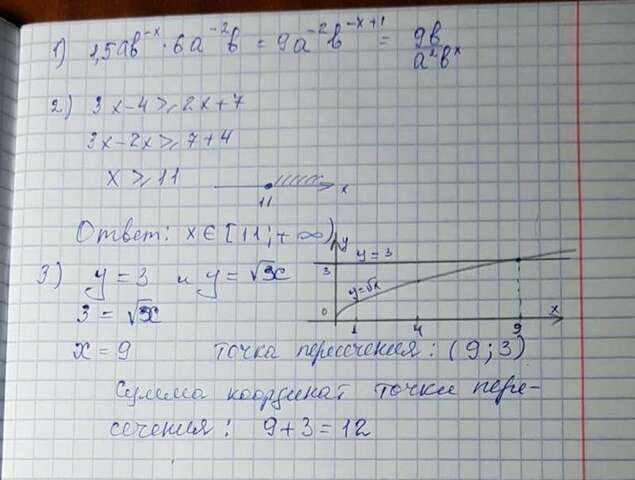 1) 1,5ab⁻ˣ · 6a⁻²b = 9a⁻²b⁻ˣ⁺¹ = 9b / a²bˣ
2) 3x-4 ⩾ 2x+7
3x-2x ⩾ 7+4
x ⩾ 11
11 x
Ответ: x ∈ [11; +∞)
3) y = 3 и y = √x
3 = √x
x = 9
y
y = 3
3
y=√x
0 1 4 9 x
точка пересечения: (9; 3)
Сумма координат точки пере-
сечения: 9+3=12